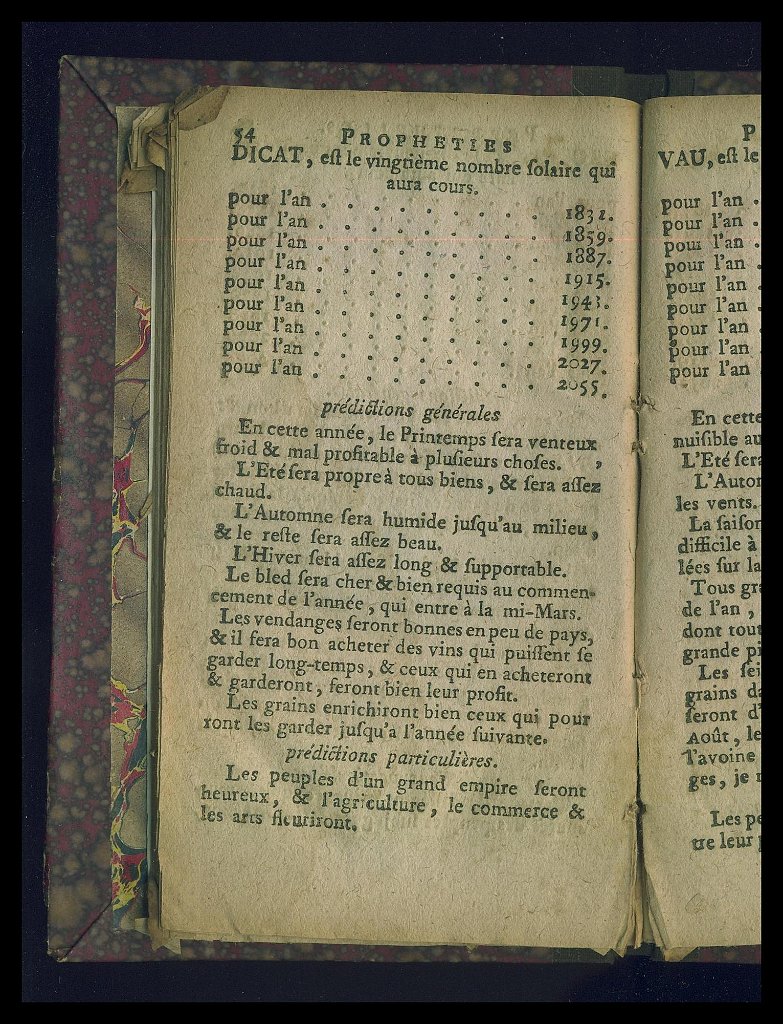 54 PROPHETIES
DICAT, eſt le vingtième nombre ſolaire qui
aura cours.
pour l'an . . . . . . . . . 1831.
pour l'an . . . . . . . . . 1859.
pour l'an . . . . . . . . . 1887.
pour l'an . . . . . . . . . 1915.
pour l'an . . . . . . . . . 1943.
pour l'an . . . . . . . . . 1971.
pour l'an . . . . . . . . . 1999.
pour l'an . . . . . . . . . 2027.
pour l'an . . . . . . . . . 2055.
prédictions générales
En cette année, le Printemps ſera venteux,
froid & mal profitable à pluſieurs choſes.
L'Eté ſera propre à tous biens, & ſera aſſez
chaud.
L'Automne ſera humide juſqu'au milieu,
& le reſte ſera aſſez beau.
L'Hiver ſera aſſez long & ſupportable.
Le bled ſera cher & bien requis au commen-
cement de l'année, qui entre à la mi-Mars.
Les vendanges ſeront bonnes en peu de pays,
& il fera bon acheter des vins qui puiſſent ſe
garder long-temps, & ceux qui en acheteront
& garderont, feront bien leur profit.
Les grains enrichiront bien ceux qui pour
ront les garder juſqu'a l'année ſuivante.
prédictions particulières.
Les peuples d'un grand empire ſeront
heureux, & l'agriculture, le commerce &
les arts fleuriront.
P
VAU, eſt le
pour l'an .
pour l'an .
pour l'an .
pour l'an .
pour l'an .
pour l'an .
pour l'an .
pour l'an .
pour l'an
En cette
nuiſible au
L'Eté ſera
L'Auto
les vents.
La ſaiſon
difficile à
lées ſur la
Tous gr
de l'an ,
dont tout
grande pi
Les ſei
grains da
ſeront d'
Août, le
l'avoine
ges, je
Les pe
tre leur